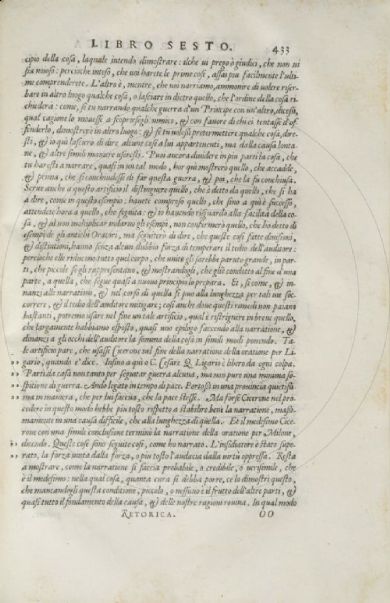 LIBRO SESTO. 433
cipio della cosa, laquale intendo dimostrare: ilche ui prego ò giudici, che non ui
sia noioso: percioche inteso, che uoi harete le prime cose, assai piu facilmente l'ulti-
me comprenderete. L'altro è, mentre, che noi narriamo, ammonire di uolere riser-
bare in altro luogo qualche cosa, o lasciare in dietro quello, che l'ordine della cosa ri-
chiederà: come, se tu narrando qualche guerra d'un Principe con un'altro, dicessi,
qual cagione lo mouesse a scoprirsegli nimico, & con fauore di chi ei tentasse d'of
fenderlo, dimostrerò in altro luogo: & se tu uolessi pretermettere qualche cosa, dire-
sti, & io quì lascierò di dire, alcune cose a lui appartenenti, ma dalla causa lonta-
ne, & altre simili maniere useresti. Puoi ancora diuidere in piu parti la cosa, che
tu haresti a narrare, quasi in un tal modo, hor quì mostrerò quello, che accadde,
& prima, che si conchiudesse di far questa guerra, & poi, che la fu conchiusa.
Serue anche a questo artificio il distinguere quello, che è detto da quello, che si ha
a dire, come in questo esempio: hauete compreso quello, che sino a quì è successo,
attendete hora a quello, che seguita: & io hauendo risguardo alla facilità della co-
sa, & al non moltiplicar indarno gli esempi, non confirmerò quello, che ho detto di
esempi de gli antichi Oratori, ma seguiterò di dire, che queste così fatte diuisioni,
& distintioni, hanno senza alcun dubbio forza di temperare il tedio dell'auditore:
percioche elle riducono tutto quel corpo, che unito gli sarebbe paruto grande, in par-
ti, che picciole se gli rappresentano, & mostrandogli, che già condotto al fine d'una
parte, a quella, che segue quasi a nuouo principio lo prepara. Et, sì come, in-
nanzi alle narrationi, & nel corso di quella si può alla lunghezza per tali uie soc-
correre, & il tedio dell'auditore mitigare; così anche doue questi rimedi non paiano
bastanti, potremo usare nel fine un tale artificio, qual è restrignere in breue quello,
che largamente habbiamo esposto, quasi uno epilogo facendo alla narratione, &
dinanzi a gli occhi dell'auditore la somma della cosa in simili modi ponendo. Ta-
le artificio pare, che usasse Cicerone nel fine della narratione della oratione per Li-
gario, quando e' dice. Infino a quì ò C. Cesare Q. Ligario è libero da ogni colpa.
Partì da casa non tanto per seguitar guerra alcuna, ma non pure una minima so-
spitione di guerra. Andò legato in tempo di pace. Portossi in una prouincia quietissi-
ma in maniera, che per lui faccia, che la pace stesse. Ma forse Cicerone nel pro-
cedere in questo modo hebbe piu tosto rispetto a stabilire bene la narratione, massi-
mamente in una causa difficile, che alla lunghezza di quella. Et il medesimo Cice-
rone con una simile conclusione terminò la narratione della oratione per Milone,
dicendo. Queste cose sono seguite così, come ho narrato. L'insidiatore è stato supe-
rato, la forza uinta dalla forza, o piu tosto l'audacia dalla uirtù oppressa. Resta
a mostrare, come la narratione si faccia probabile, o credibile, o uerisimile, che
è il medesimo: nella qual cosa, quanta cura si debba porre, ce lo dimostri questo,
che mancandogli questa conditione, picciolo, o nessuno è il frutto dell'altre parti, &
quasi tutto il fondamento della causa, & delle nostre ragioni rouina. In qual modo
RETORICA. OO